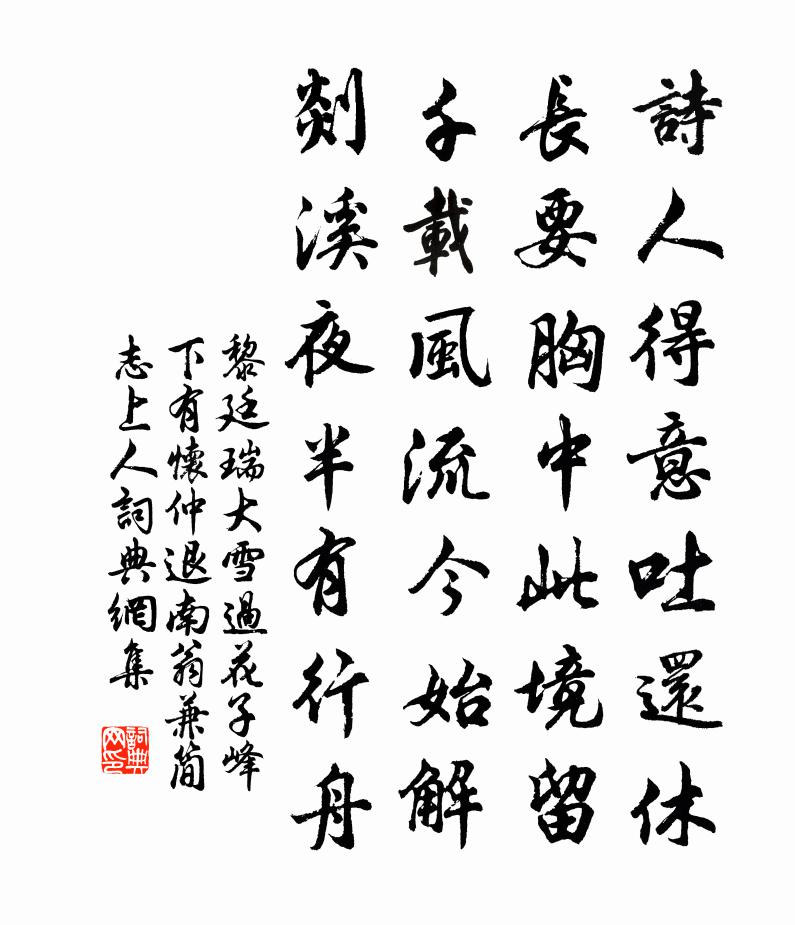 詩人得意吐還休
長要胸中此境留
千載風流今始解
剡溪夜半有行舟
黎廷瑞大雪過花子峰
下有懷仲退南翁兼簡
志上人詞典網集
詞典網印